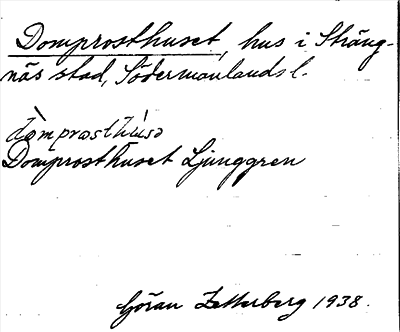 Domprosthuset, hus i Sträng-
näs stad, Södermanlands l.
dòmprosthúsə
Domprosthuset Ljunggren
Göran Zetterberg 1938.